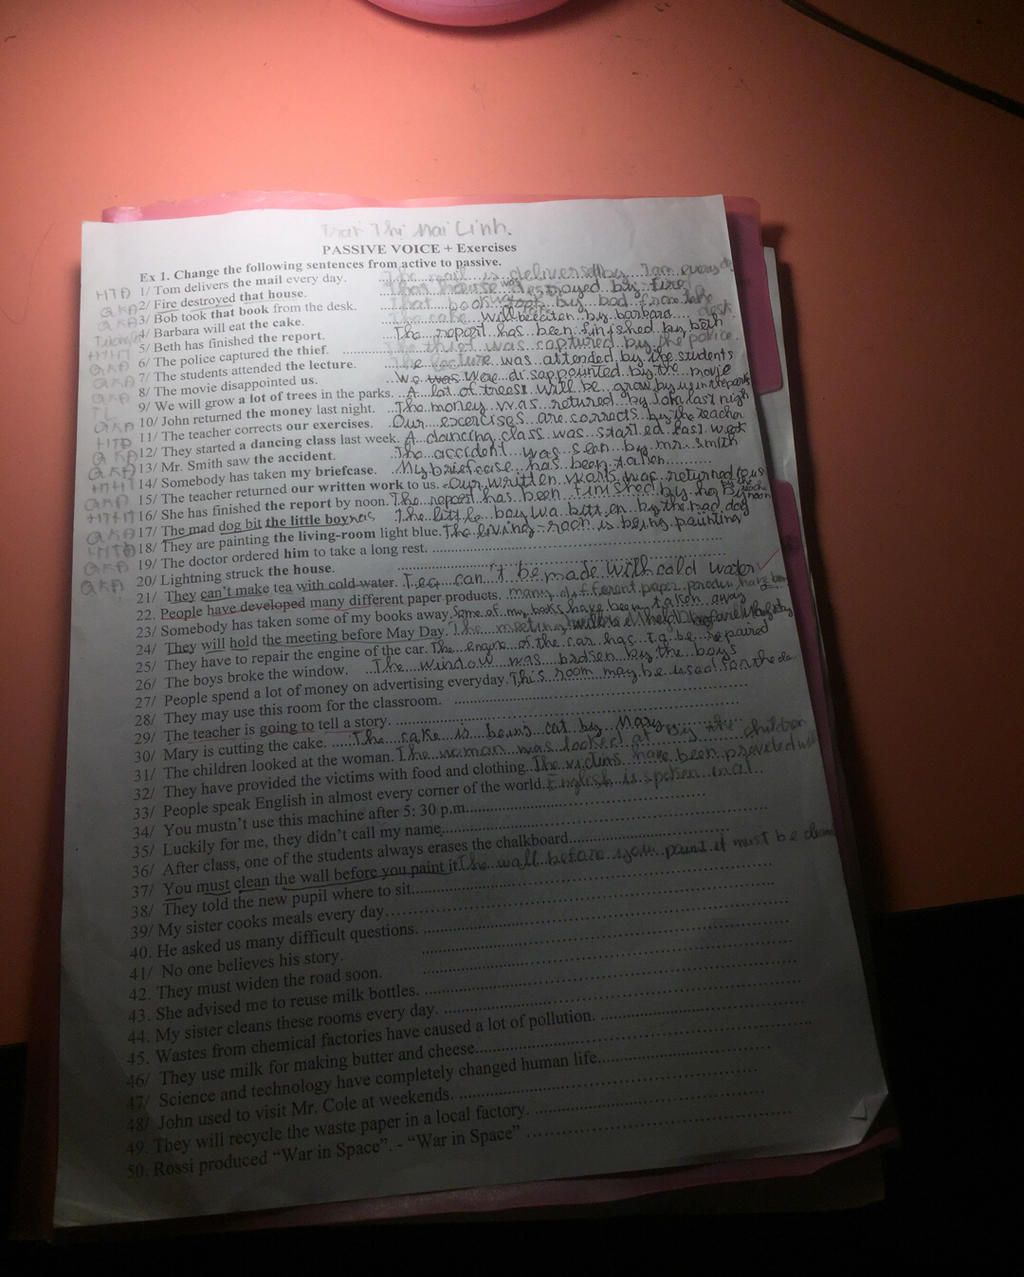 Mai Linh.
PASSIVE VOICE + Exercises
Ex 1. Change the following sentences from active to passive.
HTĐ 1/ Tom delivers the mail every day. The mail is delivered by Tom every day
QKĐ 2/ Fire destroyed that house. That house was destroyed by fire
QKĐ 3/ Bob took that book from the desk. That book took by bod from the desk.
4/ Barbara will eat the cake. The cake will by barbara
HTHT 5/ Beth has finished the report. The report has been finished by beth
QKĐ 6/ The police captured the thief. The thief was captured by the police.
QKĐ 7/ The students attended the lecture. The lecture was attended by the students
QKĐ 8/ The movie disappointed us. We was were disappointed by the movie
TL 9/ We will grow a lot of trees in the parks. A lot of trees will be grow by us in the parks
QKĐ 10/ John returned the money last night. The money was retured by John last nigh
HTĐ 11/ The teacher corrects our exercises. Our excercises are corrects by the teacher
QKĐ 12/ They started a dancing class last week. A dancing class was started last week
QKĐ 13/ Mr. Smith saw the accident. The accident was seen by mr. smith
HTHT 14/ Somebody has taken my briefcase. My briefcase has been taken
QKĐ 15/ The teacher returned our written work to us. Our written work was returned to us
HTHT 16/ She has finished the report by noon. The report has been finished by her By noon
QKĐ 17/ The mad dog bit the little boy. The little boy wa bitten by the mad dog
18/ They are painting the living-room light blue. The living-room is being painting
QKĐ 19/ The doctor ordered him to take a long rest.
QKĐ 20/ Lightning struck the house.
21/ They can't make tea with cold water. Tea can't be made with cold water
22. People have developed many different paper products. many different paper have been
23/ Somebody has taken some of my books away. Some of my books have been taken away
24/ They will hold the meeting before May Day. The meeting will held before May Day
25/ They have to repair the engine of the car. The engine of the car has to be repaired
26/ The boys broke the window. The window was broken by the boys
27/ People spend a lot of money on advertising everyday. This room may be used for the cla
28/ They may use this room for the classroom.
29/ The teacher is going to tell a story.
30/ Mary is cutting the cake. The cake is being cut by Mary
31/ The children looked at the woman. The woman was looked at By the children
32/ They have provided the victims with food and clothing. The victims have been provided with
33/ People speak English in almost every corner of the world. English is spoken in al
34/ You mustn't use this machine after 5: 30 p.m.
35/ Luckily for me, they didn't call my name
36/ After class, one of the students always erases the chalkboard
37/ You must clean the wall before you paint it The wall before you paint it must be clean
38/ They told the new pupil where to sit
39/ My sister cooks meals every day
40. He asked us many difficult questions.
41/ No one believes his story.
42. They must widen the road soon.
43. She advised me to reuse milk bottles.
44. My sister cleans these rooms every day.
45. Wastes from chemical factories have caused a lot of pollution.
46/ They use milk for making butter and cheese
47/ Science and technology have completely changed human life
48/ John used to visit Mr. Cole at weekends.
49. They will recycle the waste paper in a local factory.
50. Rossi produced "War in Space". - "War in Space"